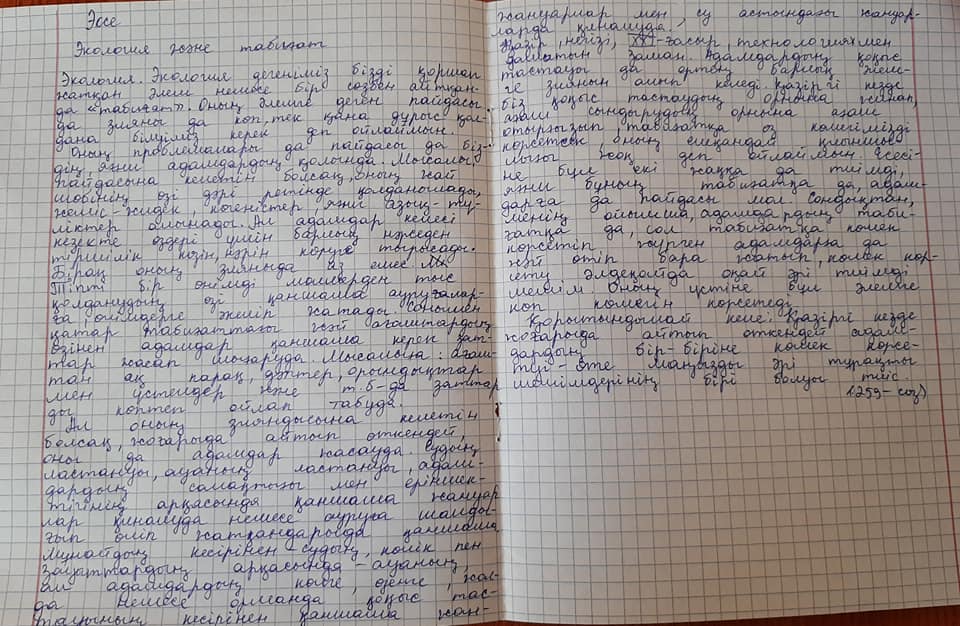 Эссе
Экология және табиғат
Экология. Экология дегеніміз бізді қоршап
жатқан әлем немесе бір сөзбен айтқан-
да «табиғат». Оның әлемге деген пайдасы
да зияны да көп, тек қана дұрыс қол-
дана білуіміз керек деп ойлаймын.
Оның проблемалары да пайдасы да біз-
дің, яғни адамдардың қолында. Мысалы,
пайдасына келетін болсақ, оның жай
шөбінің өзі дәрі ретінде қолданылады,
жеміс-жидек, көгеністер яғни азық-тү-
ліктер алынады. Ал адамдар келесі
кезекте өздері үшін барлық нәрседен
тіршілік көзін, нәрін көруге тырысады.
Бірақ оның зиянында аз емес.
Тіпті бір өнімді мөлшерден тыс
қолданудың өзі қаншама ауруғалар-
ға өлімдерге әкеліп жатады. Сонымен
қатар табиғаттағы жай ағаштардың
өзінен адамдар қаншама керек зат-
тар жасап шығаруда. Мысалына: ағаш-
тан ақ парақ, дәптер, орындықтар
мен үстелдер және т.б-да заттар
ды көптеп ойлап табуда.
Ал оның зияндысына келетін
болсақ, жоғарыда айтып өткендей,
оны да адамдар жасауда. Судың
ластануы, ауаның ластануы, адам-
дардың салақтығы мен еріншек-
тігінің арқасында қаншама жануар
лар қиналуда немесе ауруға шалды-
ғып өліп жатқандарыда қаншама
Мұнайдың кесірінен-судың, көлік пен
зауыттардың арқасында-ауаның,
ал адамдардың көлге, өзенге, жол-
да немесе орманда қоқыс тас-
тауының кесірінен қаншама жан-
жануарлар мен, су астындағы жануар-
ларда қиналуда.
Қазір, негізі, XXI-ғасыр, технологиямен
дамыған заман. Адамдардың қоқыс
тастауы да өртең барлық жем-
ге зиянын алып келеді. Қазіргі кезде
біз қоқыс тастаудың орнына жинап,
ағаш сындырудың орнына ағаш
отырғызып, табиғатқа өз көмегімізді
көрсетсек, оның ешқандай қиыншы-
лығы жоқ деп ойлаймын. Есесі-
не бұл екі жаққа да тиімді,
яғни бұның табиғатқа да, адам-
дарға да пайдасы мол. Сондықтан,
менің ойымша, адамдардың таби-
ғатқа да, сол табиғатқа көмек
көрсетіп жүрген адамдарға да
жай өтіп бара жатып, көмек көр-
сету әлдеқайда оңай әрі тиімді
шешім. Оның үстіне бұл әлемге
көп көмегін көрсетеді.
Қорытындылай келе: Қазіргі кезде
жоғарыда айтып өткендей адам-
дардың бір-біріне көмек көрсе-
туі-өте маңызды әрі тұрақты
шешімдерінің бірі болуы тиіс.
(259-сөз)